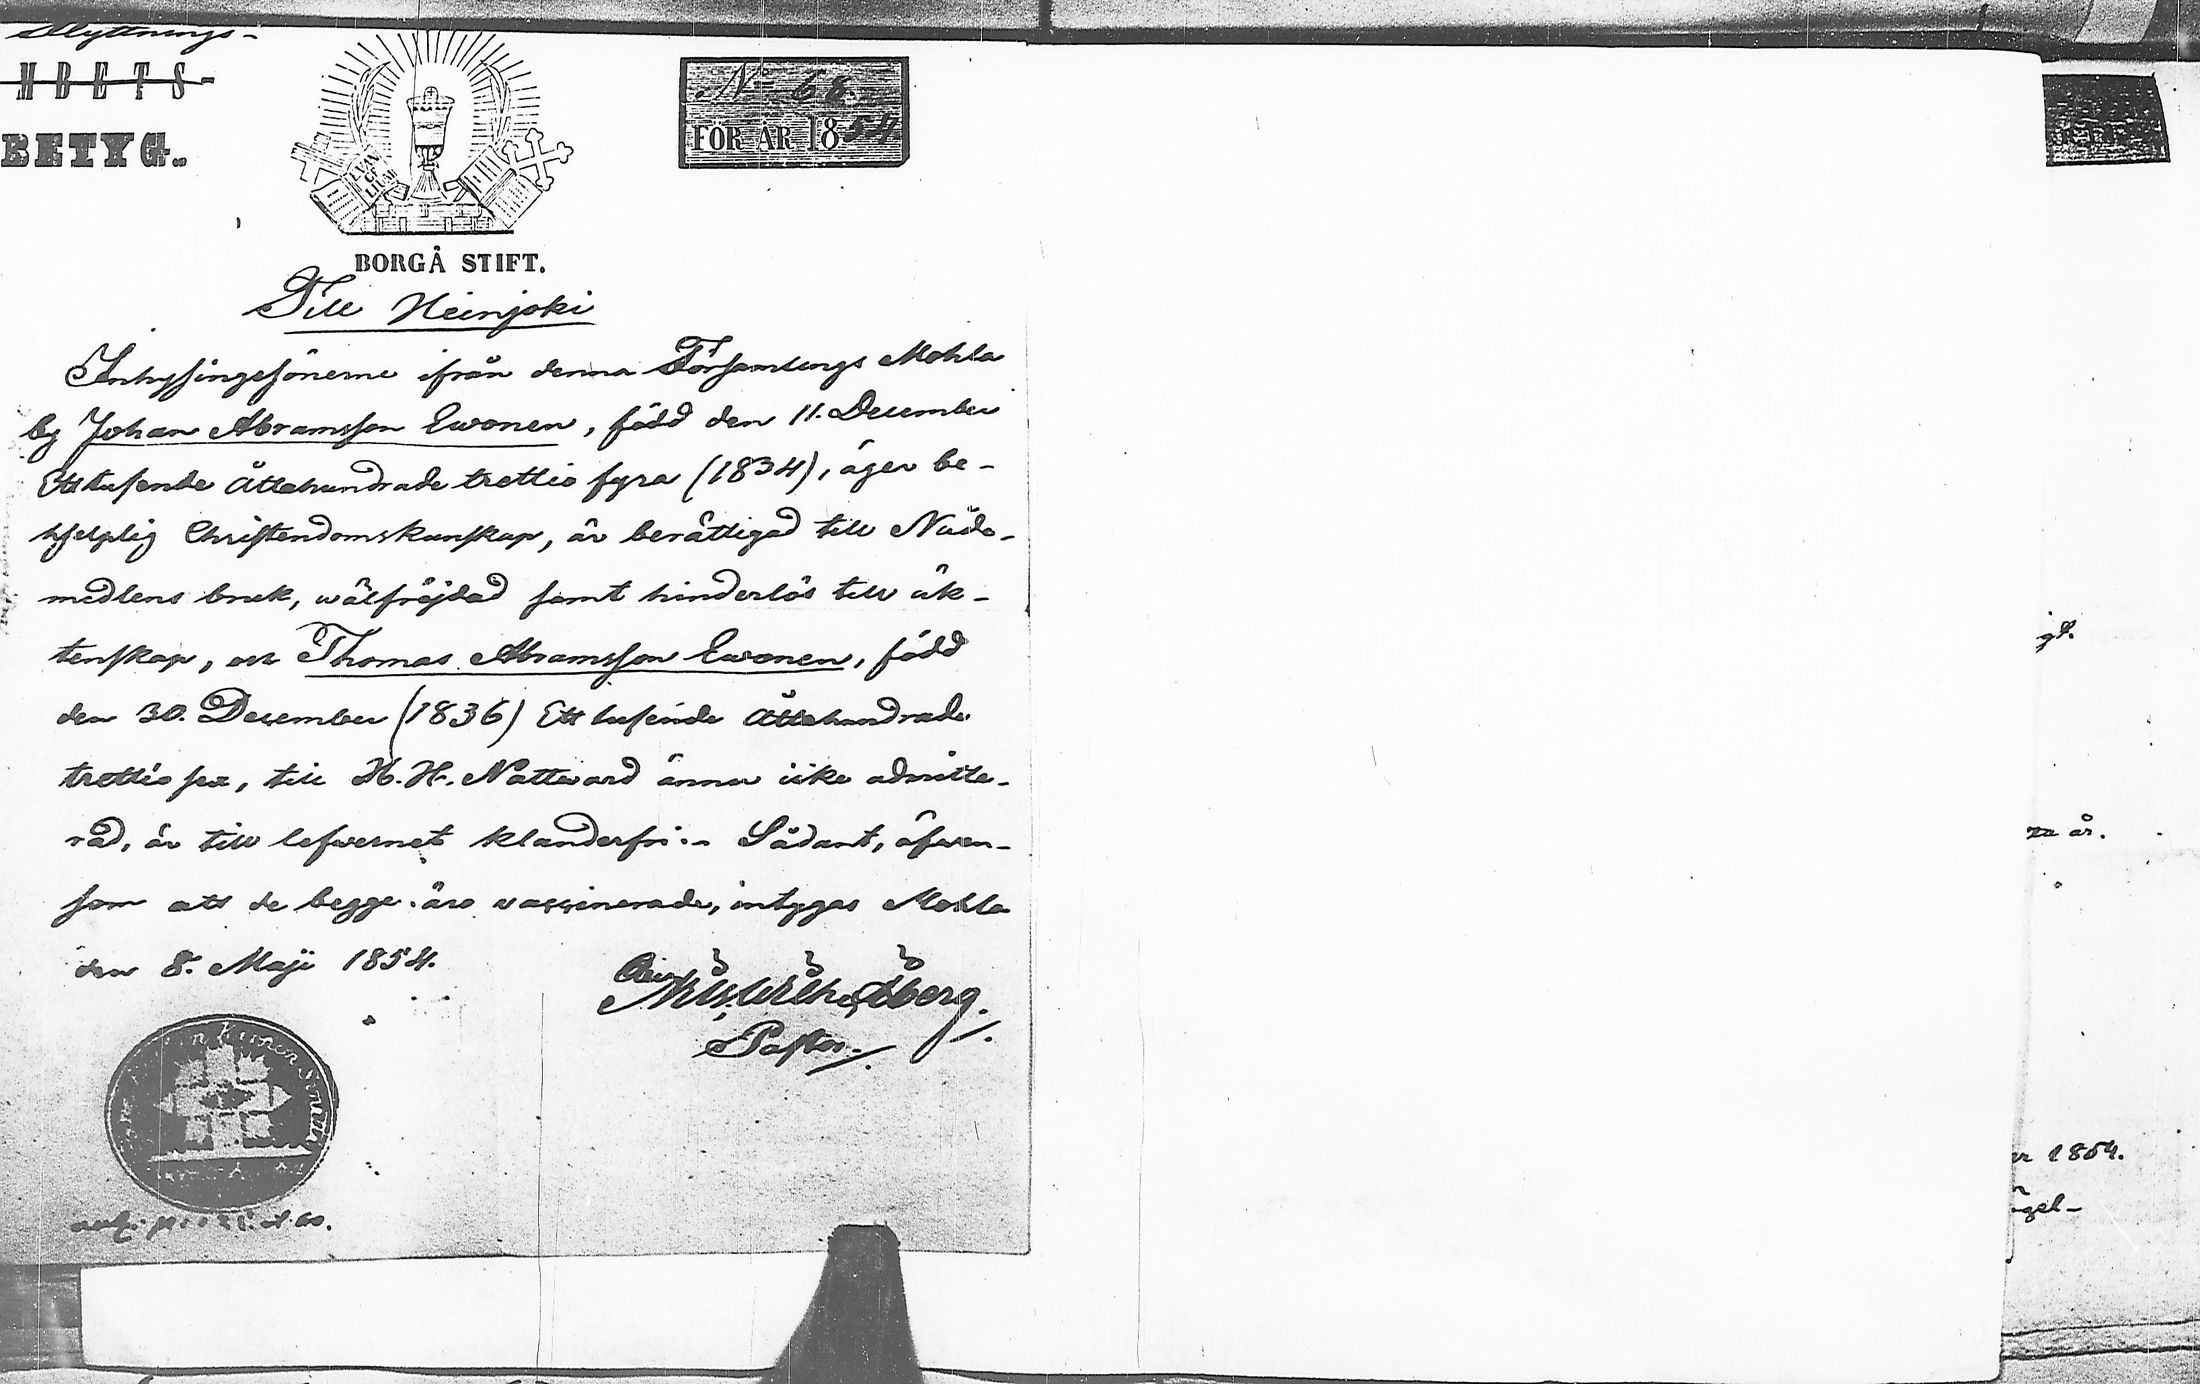 Flyttnings-
ÄMBETS-
BETYG.
No 66.
FÖR ÅR 1854.
BORGÅ STIFT.
Till Heinjoki
Inhysingesönerne ifrån denna Församlings Mohla
by Johan Abramsson Ewonen, född den 11. December
Ettusende Åttahundrade trettio fyra (1834), äger be-
hjelplig Christendomskunskap, är berättigad till Nåde-
medlens bruk, wälfräjdad samt hinderlös till äk-
tenskap, och Thomas Abramsson Ewonen, född
den 30. December (1836) Ett tusende Åttahundrade
trettio sex, till H. H. Nattward ännu icke admitte-
rad, är till lefwernet klanderfri.- Sådant, äfwen-
som att de begge äro vaccinerade, intygas Mohla
den 8. Maji 1854.
Öberg.
Pastor.
gt.
ra år.
er 1854.
ögel-